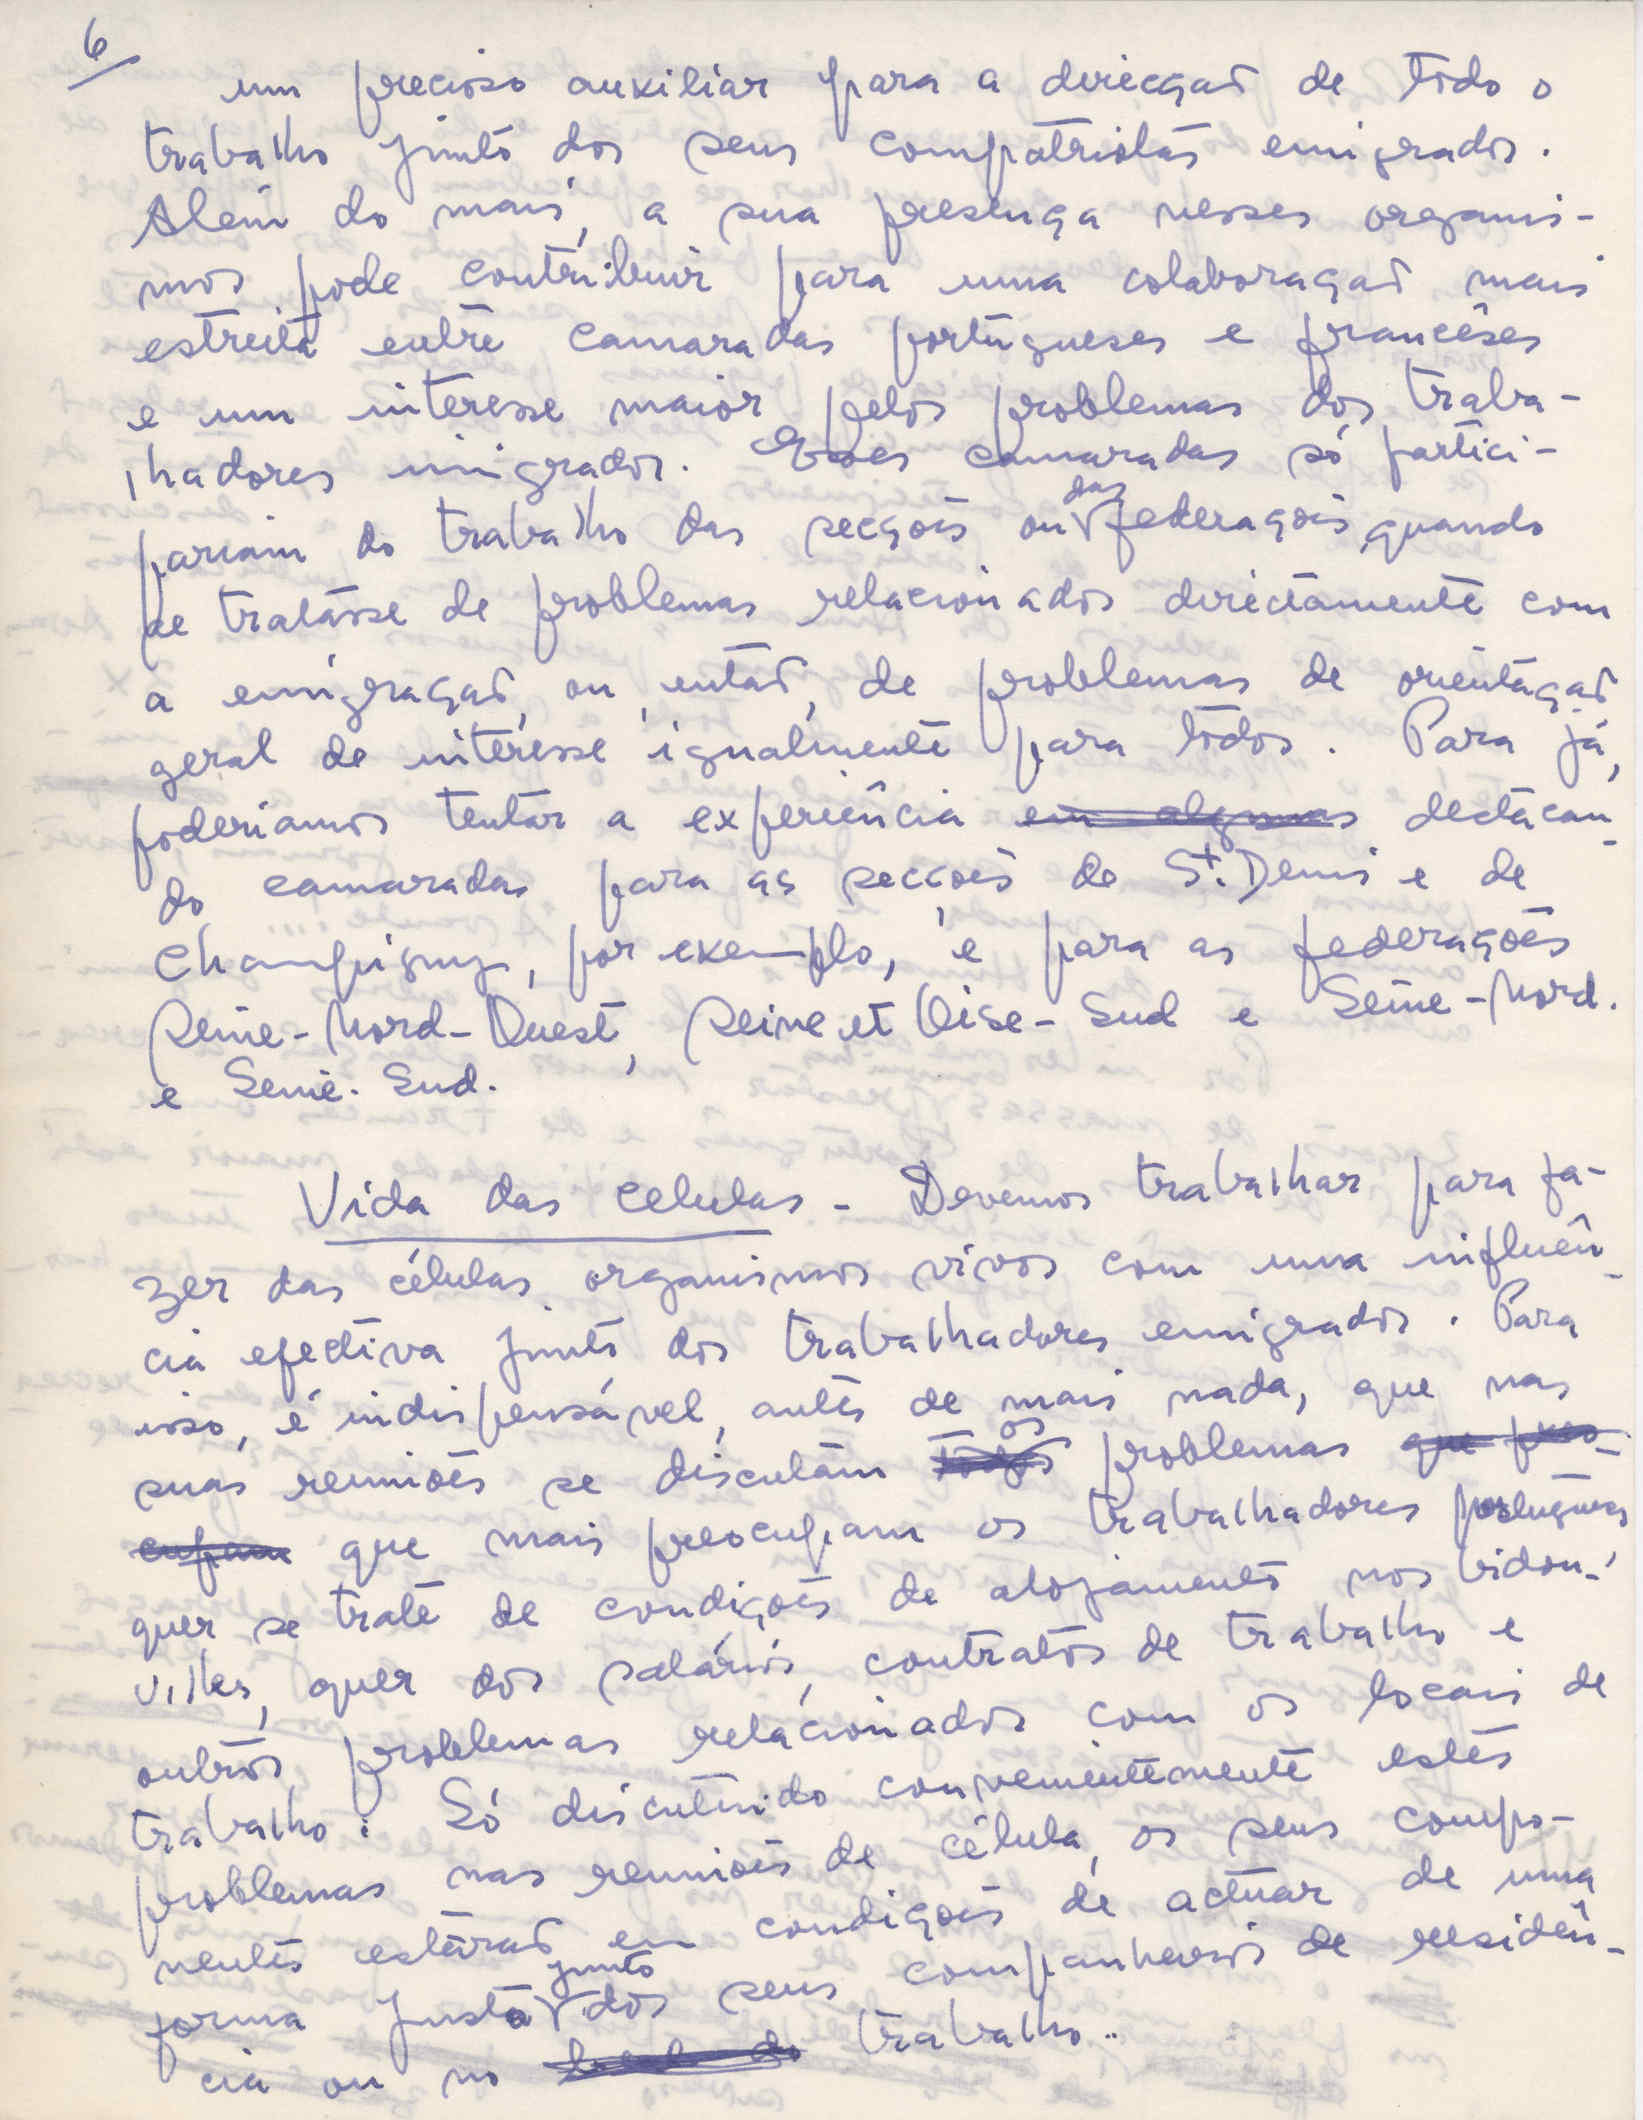 6
um precioso auxiliar para a direcção de todo o
trabalho junto dos seus compatriotas emigrados.
Além do mais, a sua presença nesses organis-
mos pode contribuir para uma colaboração mais
estreita entre camaradas portugueses e francêses
e um interesse maior pelos problemas dos traba-
lhadores imigrados. Esses camaradas só partici-
pariam do trabalho das secções ou das federações, quando
se tratásse de problemas relacionados directamente com
a emigração, ou, então, de problemas de orientação
geral de interesse igualmente para todos. Para já,
poderiamos tentar a experiência em algumas destacan-
do camaradas para as secções de St. Denis e de
Champigny, por exemplo, e para as federações
Seine-Nord-Ouest, Seine et Oise-Sud e Seine-Nord.
e Seine-Sud.
Vida das celulas - Devemos trabalhar para fa-
zer das células organismos vivos com uma influên-
cia efectiva junto dos trabalhadores emigrados. Para
isso, é indispensável, antes de mais nada, que nas
suas reuniões se discutam todos os problemas que preo-
cupam que mais preocupam os trabalhadores portugueses
quer se trate de condições de alojamento nos bidon-
villes, quer dos salários, contratos de trabalho e
outros problemas relacionados com os locais de
trabalho. Só discutindo convenientemente estes
problemas nas reuniões de célula, os seus compo-
nentes estarão em condições de actuar de uma
forma justa junto dos seus companheiros de residên-
cia ou no trabalho.